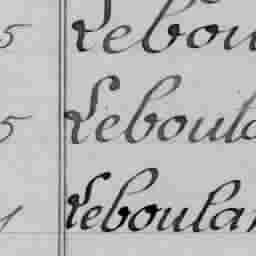 5 Lebou
5 Leboula
Leboulan